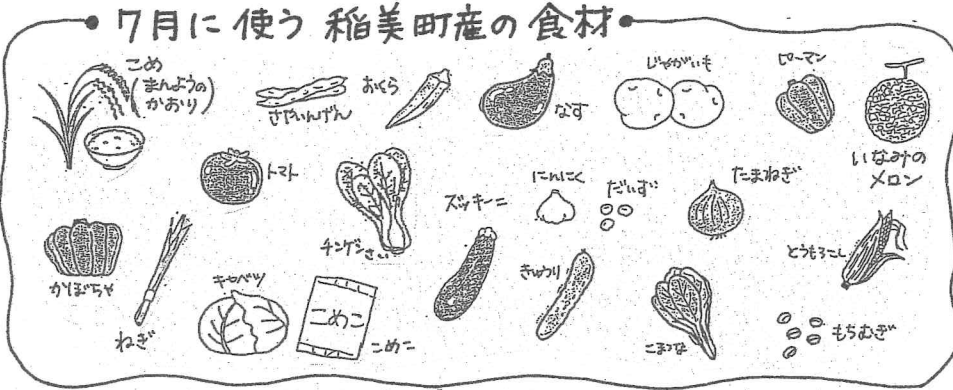 7月に使う 稲美町産の食材
こめ
(まんようの
かおり)
さやいんげん
おくら
なす
じゃがいも
ピーマン
いなみの
メロン
トマト
チンゲンさい
ズッキーニ
にんにく
だいず
たまねぎ
とうもろこし
かぼちゃ
ねぎ
キャベツ
こめこ
こめこ
きゅうり
こまつな
もちむぎ